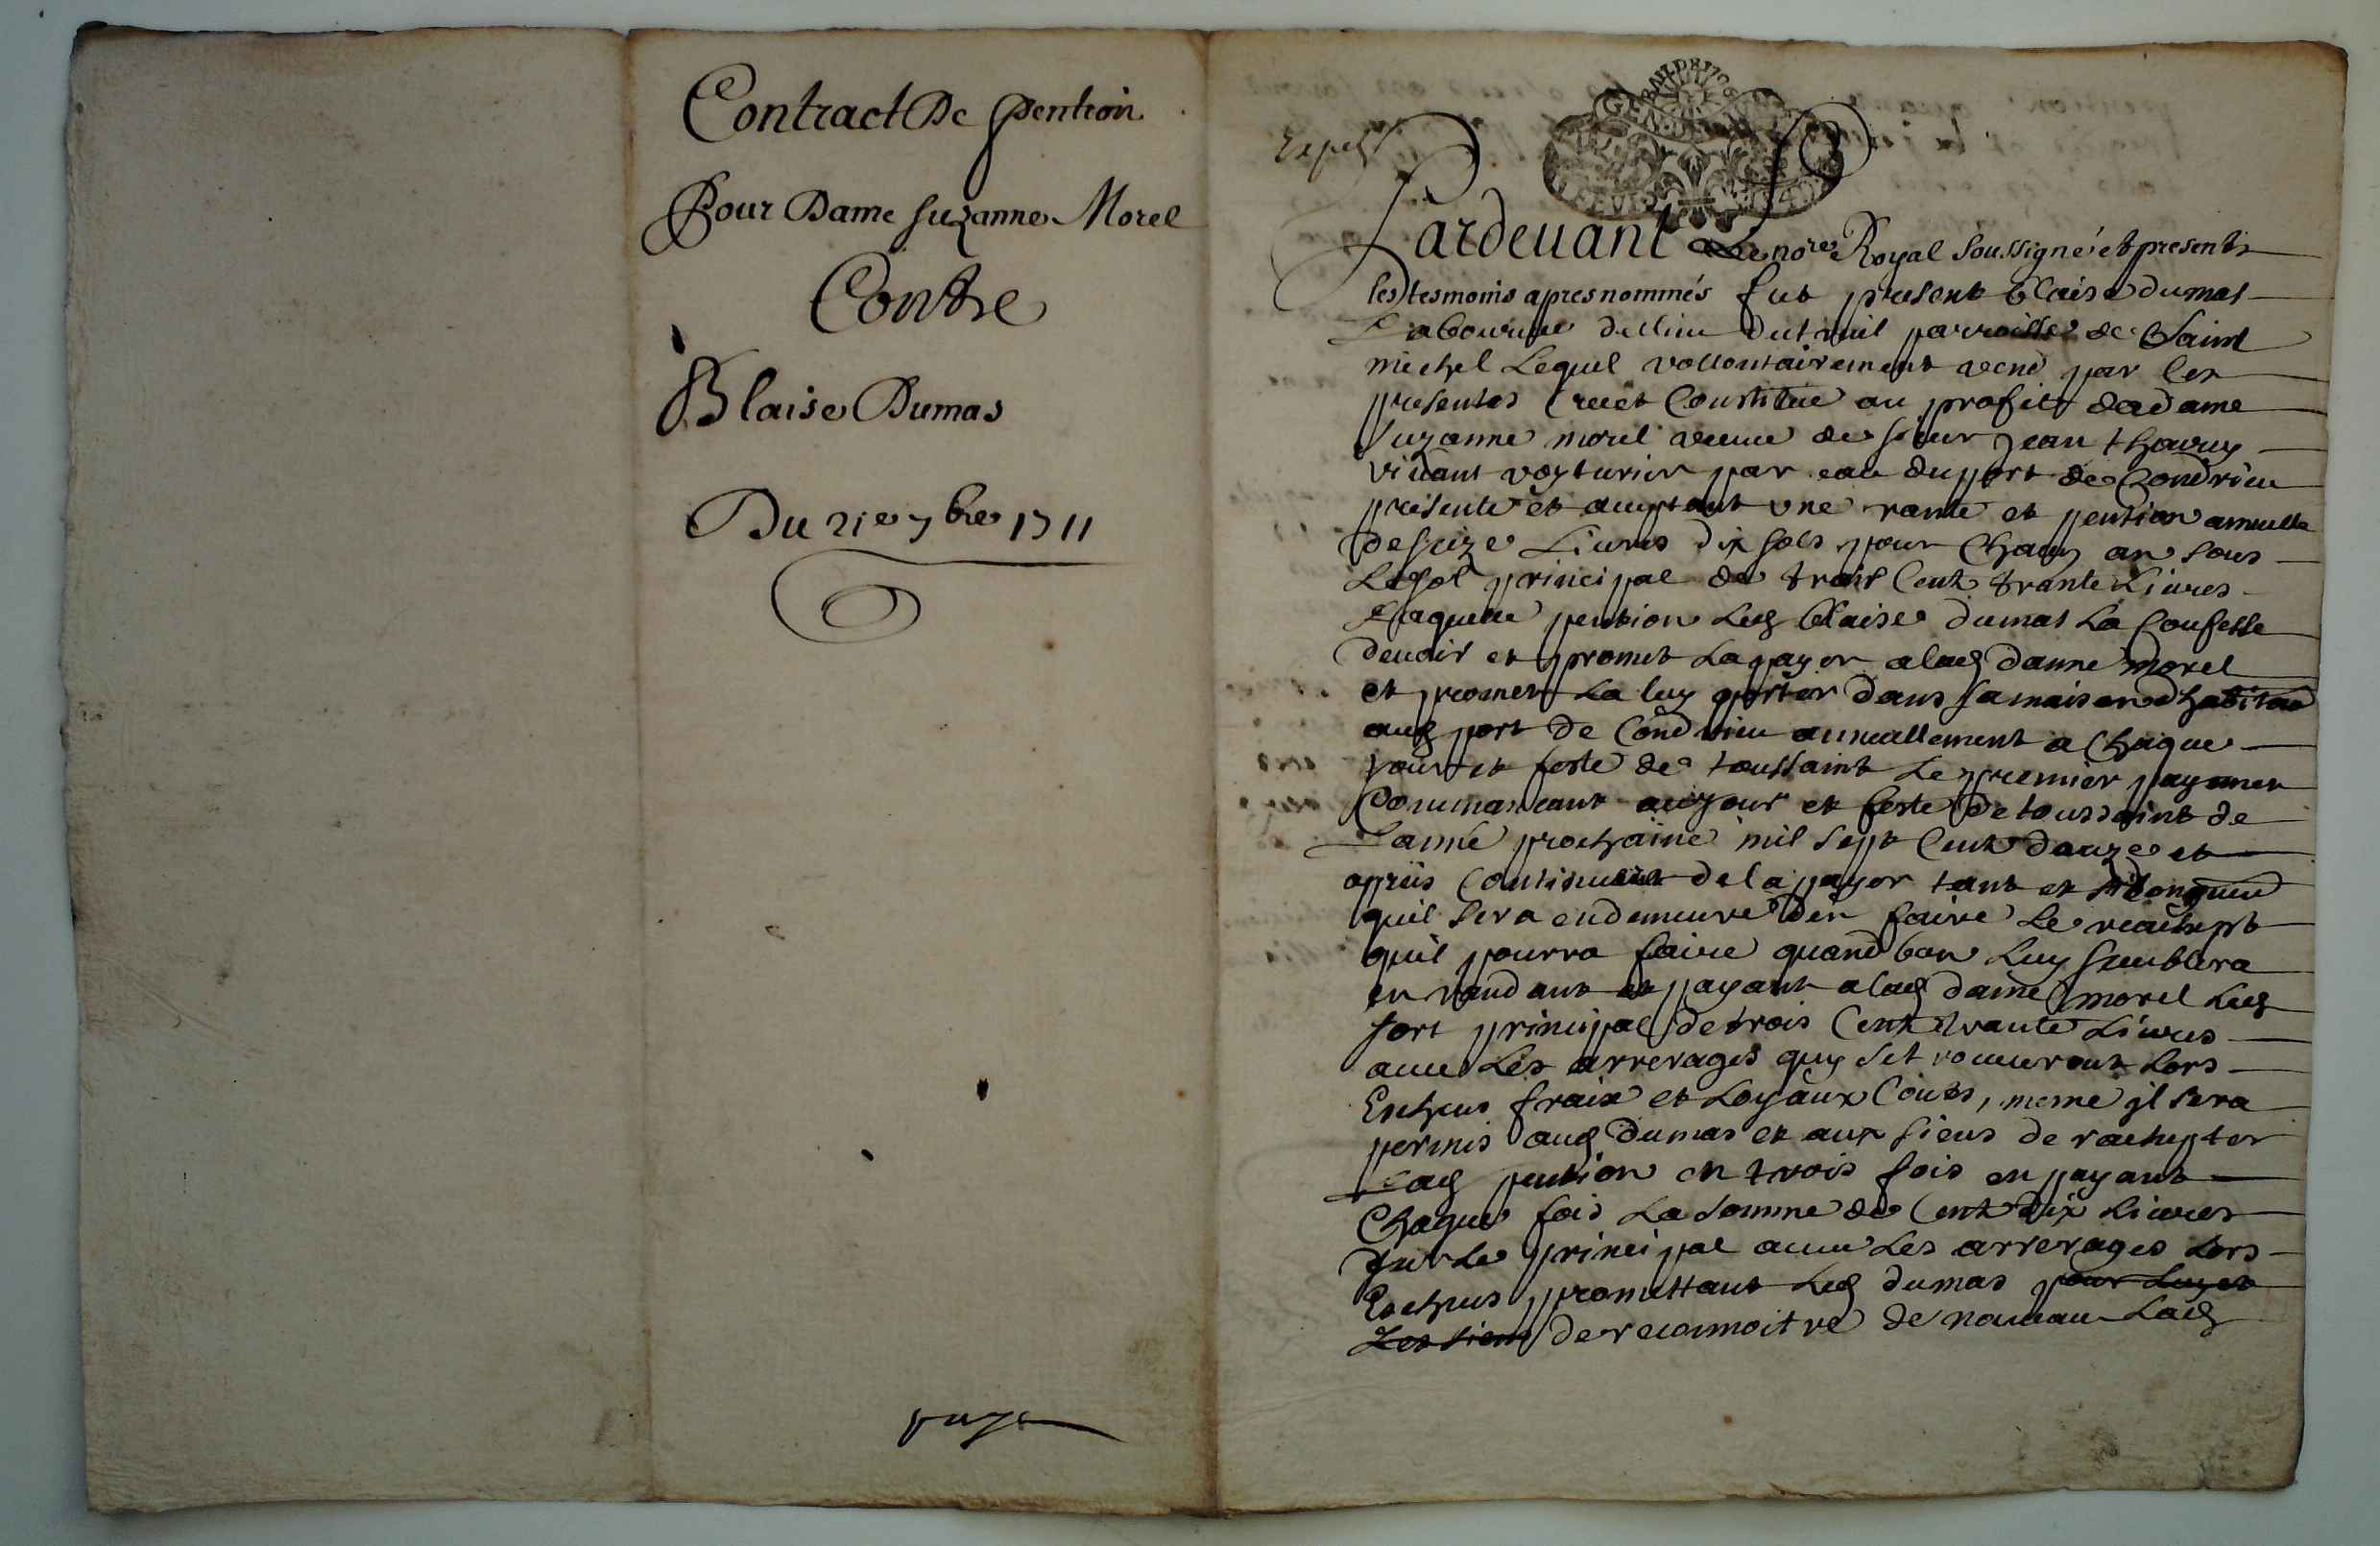 Contract De Pention
Pour Dame Suzanne Morel
Contre
Blaise Dumas
Du 21e 7bre 1711
Pardeuant Le nore Royal soussigné et presents
les tesmoins apres nommés fut present blaise dumas
Laboureur du lieu parroisse de Saint
michel Lequel vollontairement vend par les
presentes Creet Constitue au profit de dame
Suzanne morel veuve de sieur Jean
viuant voyturier par eau du port de Condrieu
presente et aceptant une rante et pention annuelle
de seize Liures dix sols pour Chaq an sous
Le sol principal de trois Cent trante Liures
Laquelle pention Led blaise dumas La Confesse
deuoir et promet La payer a lad dame morel
et promet La luy porter dans sa maison
aud port de Condrieu annuellement a Chaque
jour et feste de toussaint Le premier payemen
Commancant au jour et feste de toussaint de
L'anné prochaine mil sept Cent douze et
apriis Continuer de la payer tant et
quil sera en demeure d'en faire Le reachept
quil pourra faire quand bon Luy semblera
en randant et payant a lad dame morel Led
sort principal de trois Cent trante Liures
auec Les arrerages quy se trouueront Lors
Escheus fraix et Loyaux Couts, meme il sera
permis aud dumas et aux siens de rachepter
Lad pention en trois fois en payant
Chaque fois La somme de Cent dix Liures
sur Le principal auec Les arrerages Lors
Escheus promettant Led dumas pour Luy et
Les siens de reconnoitre de nouueau Lad